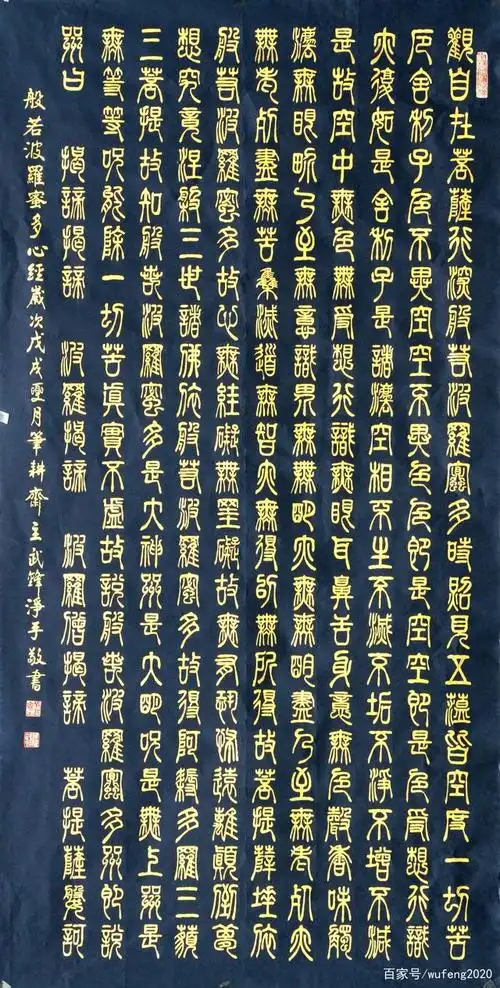 觀自在菩薩行深般若波羅蜜多時照見五蘊皆空度一切苦
厄舍利子色不異空空不異色色即是空空即是色受想行識
亦復如是舍利子是諸法空相不生不滅不垢不淨不增不減
是故空中無色無受想行識無眼耳鼻舌身意無色聲香味觸
法無眼界乃至無意識界無無明亦無無明盡乃至無老死亦
無老死盡無苦集滅道無智亦無得以無所得故菩提薩埵依
般若波羅蜜多故心無罣礙無罣礙故無有恐怖遠離顛倒夢
想究竟涅槃三世諸佛依般若波羅蜜多故得阿耨多羅三藐
三菩提故知般若波羅蜜多是大神咒是大明咒是無上咒是
無等等咒能除一切苦真實不虛故說般若波羅蜜多咒即說
咒曰 揭諦揭諦 波羅揭諦 波羅僧揭諦 菩提薩婆訶
般若波羅蜜多心經歲次戊戌月筆耕齋主武鋒淨手敬書
百家号/wufeng2020